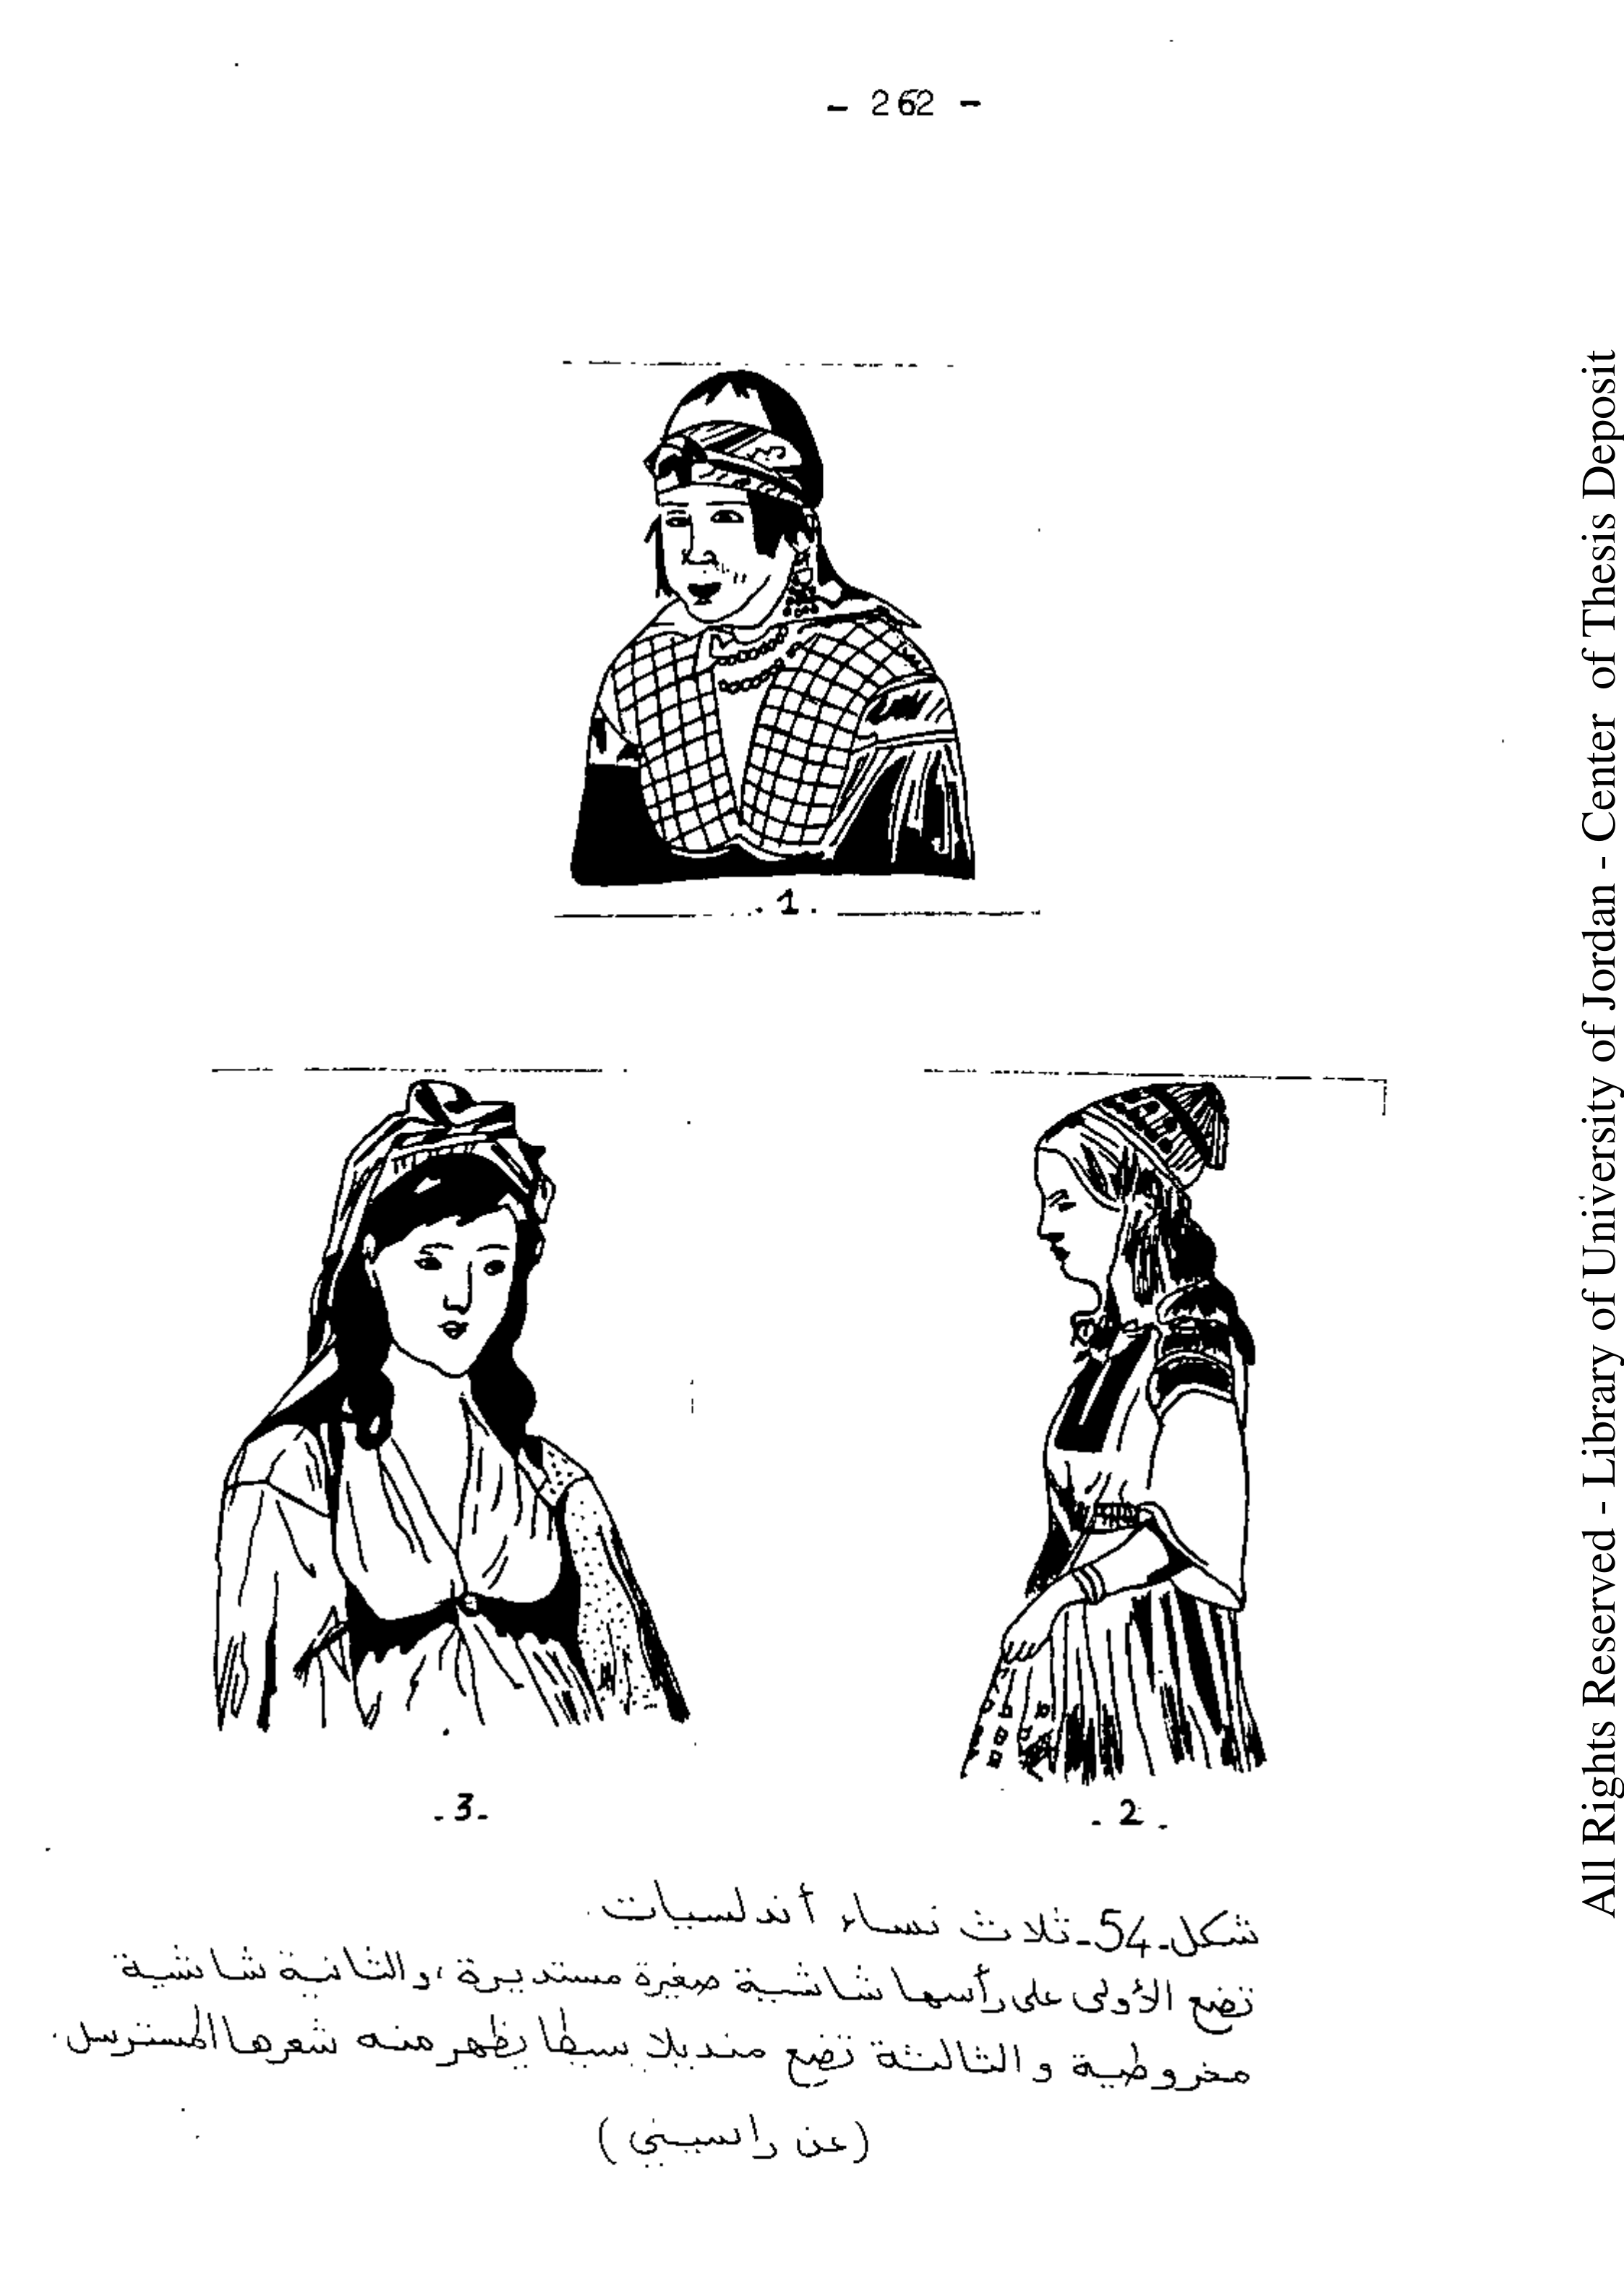 - 262 -
. 1 .
- 3 -
- 2 -
شكل-54-ثلاث نساء أندلسيات.
تضع الأولى على رأسها شاشية صغيرة مستديرة، والثانية شاشية
مخروطية والثالثة تضع منديلا بسيطا يظهر منه شعرها المسترسل.
(عن راسيني)
All Rights Reserved - Library of University of Jordan - Center of Thesis Deposit